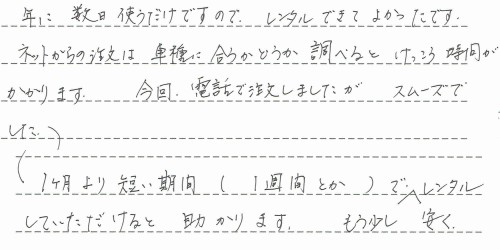 年に 数日 使うだけですので、レンタルできて よかったです。
ネットからの注文は 車種に 合うかどうか 調べると けっこう 時間が
かかります。 今回、電話で注文しましたが スムーズで
した。
(1ヶ月より 短い期間 (1週間とか) で、レンタル
していただけると 助かります。 もう少し 安く、